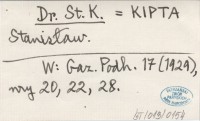 Dr. St. K. = KIPTA
Stanisław.
W: Gaz. Podh. 17 (1929),
nry 20, 22, 28.